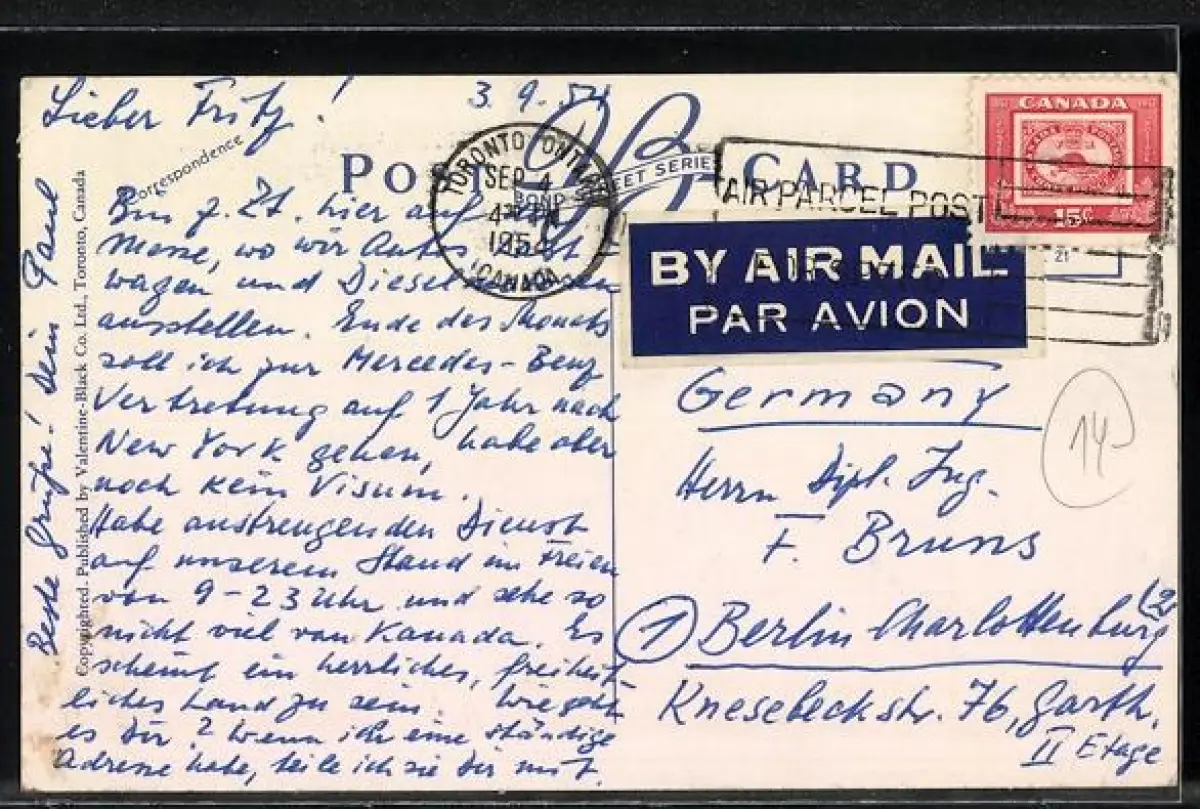 Lieber Fritz!
3.9.54
Correspondence
POST CARD
STREET SERIES
TORONTO ONTARIO
SEP 4
4 PM
1954
CANADA
AIR PARCEL POST
CANADA
15¢
BY AIR MAIL
PAR AVION
21
Bin z. Zt. hier auf
Messe, wo wir Autos, Last-
wagen und Diesel
ausstellen. Ende des Monats
soll ich zur Mercedes-Benz
Vertretung auf 1 Jahr nach
New York gehen, habe aber
noch kein Visum.
Habe anstrengenden Dienst
auf unserem Stand im Freien
von 9-23 Uhr und sehe so
nicht viel von Kanada. Es
scheint ein herrliches, freiheit-
liches Land zu sein. Wie geht
es Dir? Wenn ich eine ständige
Adresse habe, teile ich sie Dir mit.
Beste Grüße! Dein Paul
Copyrighted. Published by Valentine-Black Co. Ltd., Toronto, Canada
Germany
14-
Herrn Dipl. Ing.
F. Bruns
(1) Berlin Charlottenburg (2)
Knesebeckstr. 76, Garth.
II Etage